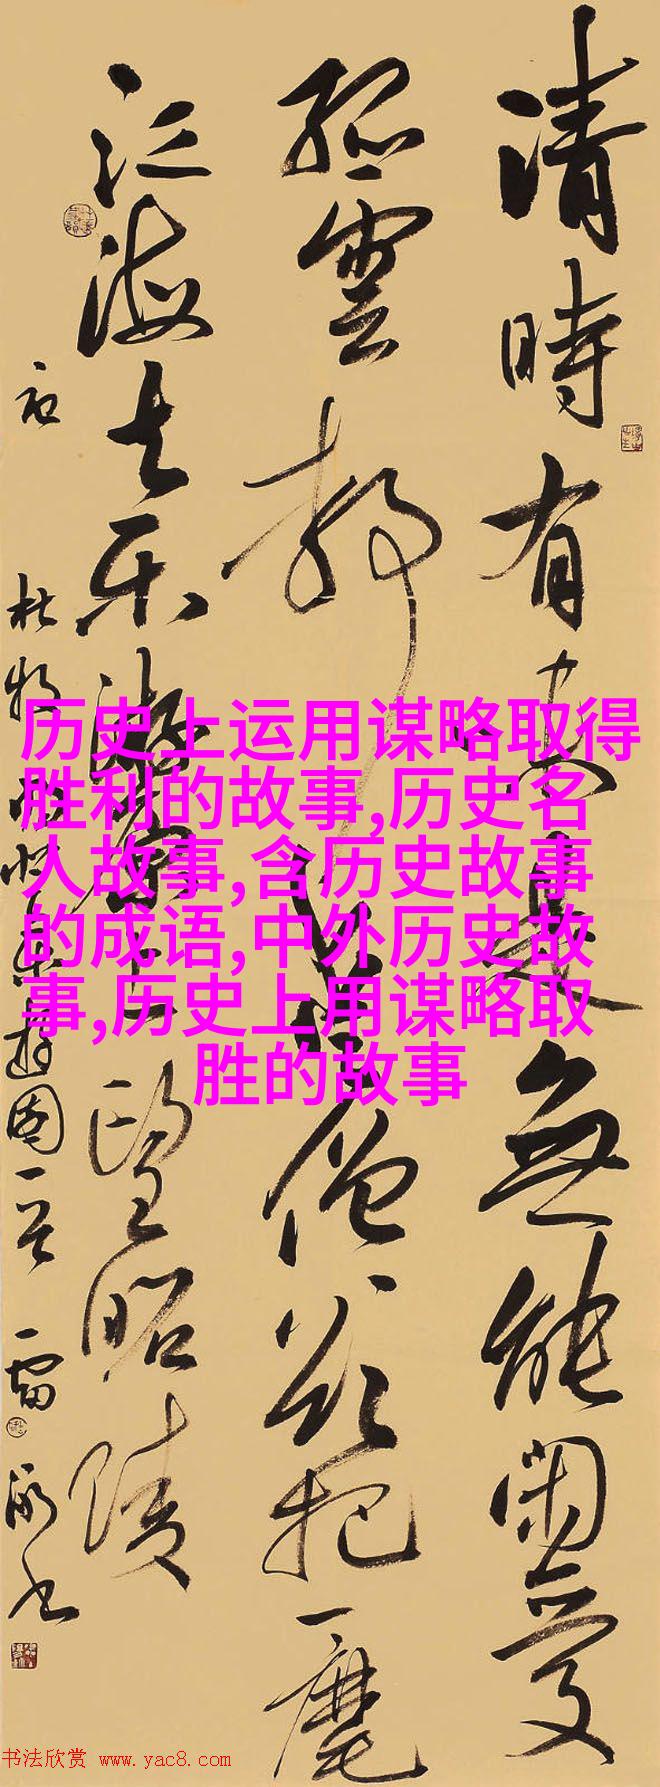 清時有味是無能閑愛
孤雲静愛僧欲把一麾
江海去乐游原上望昭陵
右 杜牧 游園一首 雷 书
历史上运用谋略取得
胜利的故事,历史名
人故事,含历史故事
的成语,中外历史故
事,历史上用谋略取
胜的故事
书法欣赏 www.yac8.com